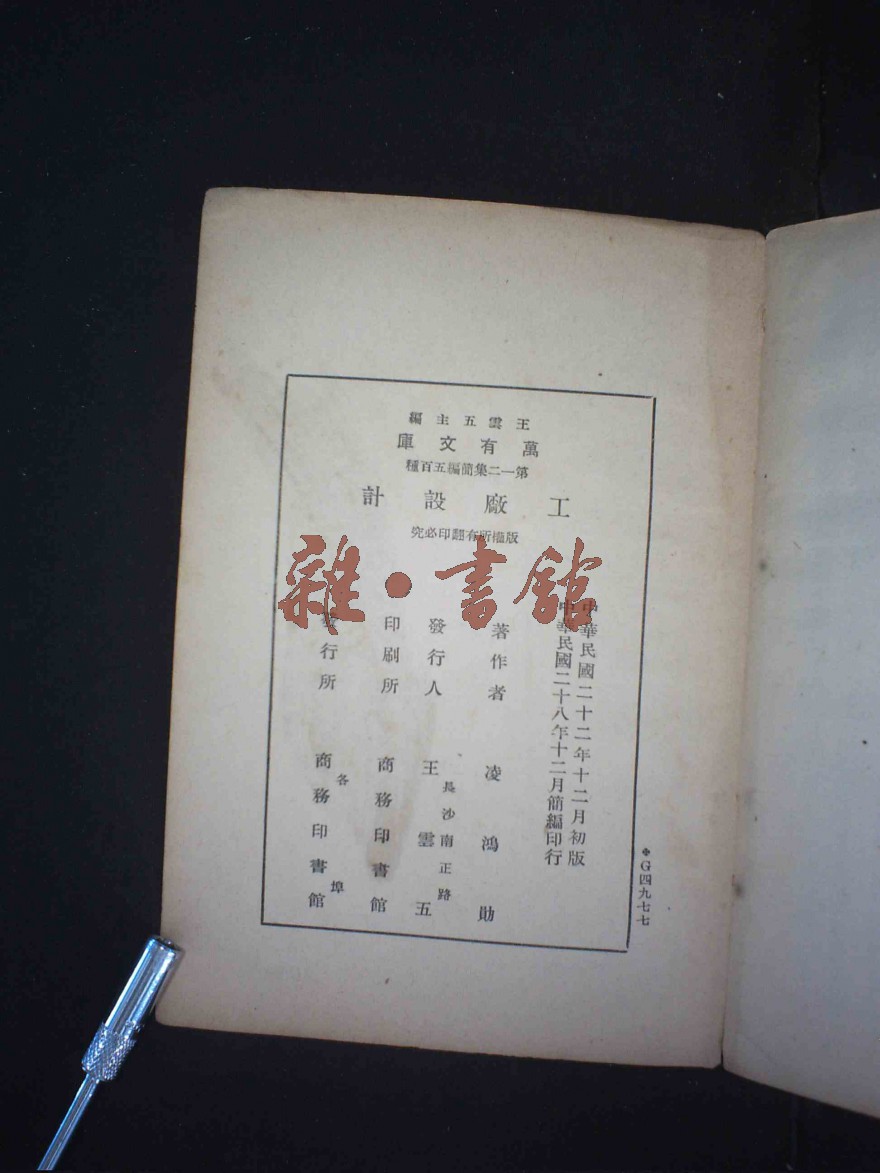 王雲五主編
萬有文庫
第一二集簡編五百種
工廠設計
版權所有翻印必究
中華民國二十二年十二月初版
中華民國二十八年十二月簡編印行
著作者 凌鴻勛
發行人 王雲五
長沙南正路
印刷所 商務印書館
發行所 商務印書館
各埠
*G四九七七
雜·書館